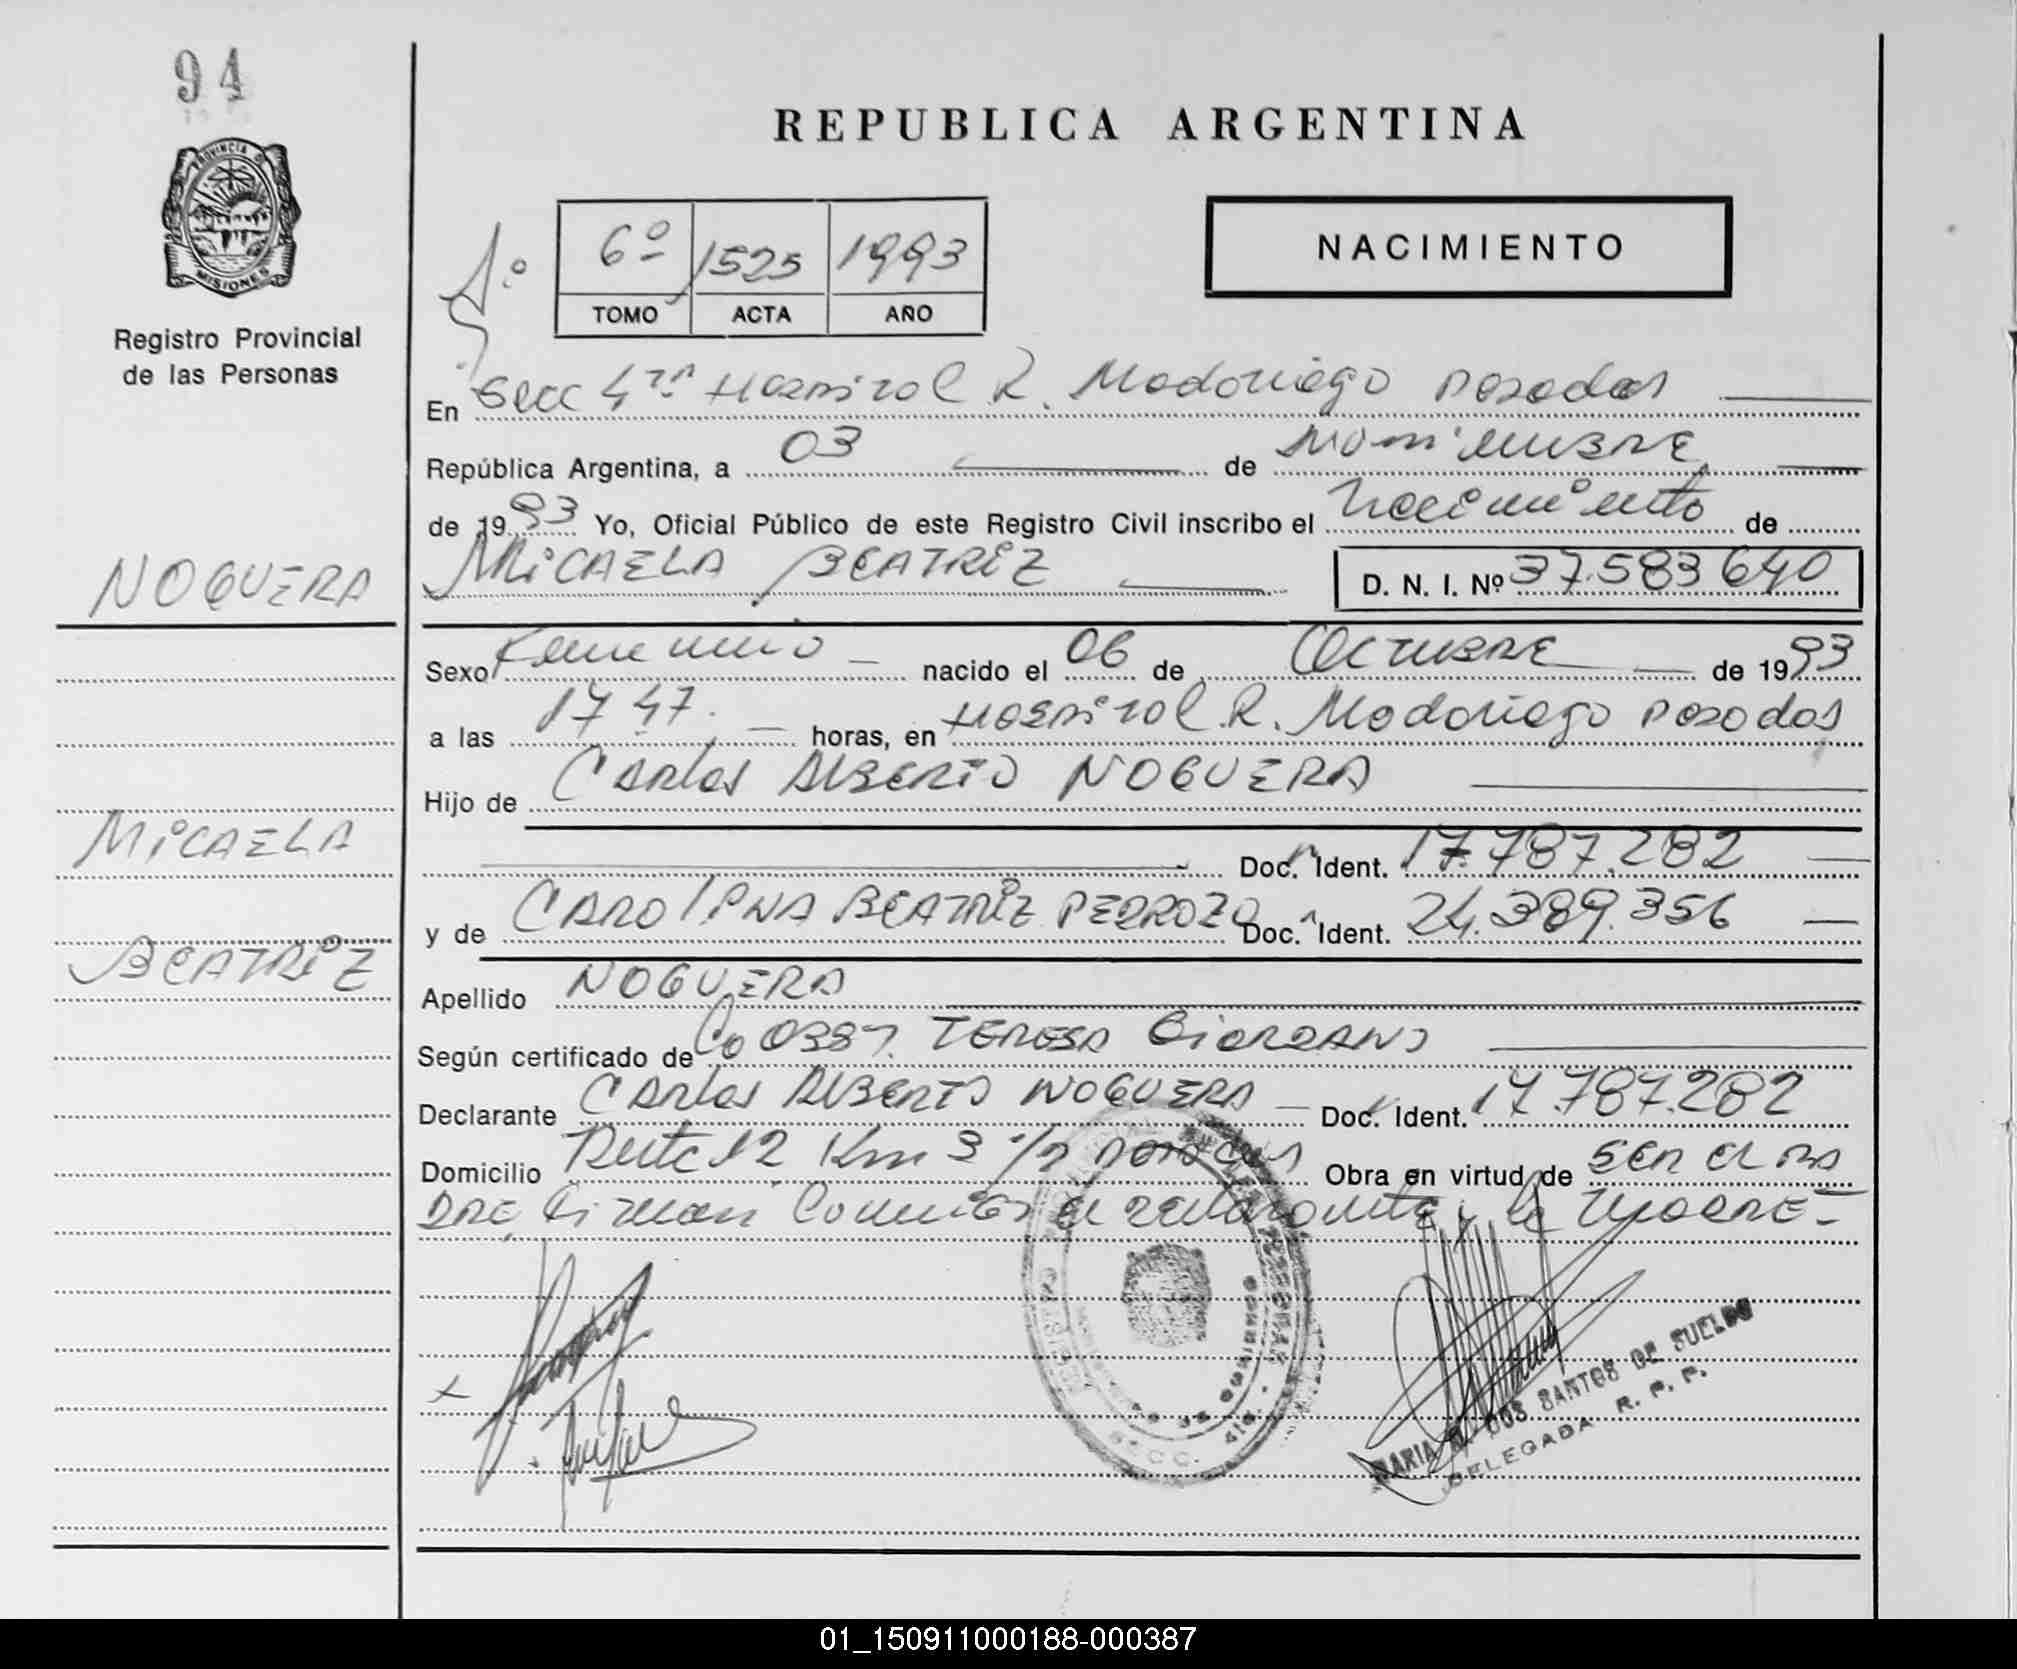 94
REPUBLICA ARGENTINA
PROVINCIA D MISIONES
Registro Provincial
de las Personas
6º 1525 1993
TOMO ACTA AÑO
NACIMIENTO
En Secc 4ta Hospital R. Madariaga Posadas
República Argentina, a 03 de Noviembre
de 1993 Yo, Oficial Público de este Registro Civil inscribo el Nacimiento de
NOGUERA
MICAELA BEATRIZ D. N. I. Nº 37.583640
Sexo Femenino nacido el 06 de Octubre de 1993
a las 17 47. horas, en Hospital R. Madariaga Posadas
Hijo de Carlos Alberto NOGUERA
MICAELA
Doc. Ident. 17.787.282
y de CAROLINA BEATRIZ PEDROZO Doc. Ident. 24.389.356
BEATRIZ
Apellido NOGUERA
Según certificado de Co 0387. TERESA GIORDANO
Declarante Carlos Alberto NOGUERA Doc. Ident. 17.787.282
Domicilio Ruta 12 Km 3 1/2 Posadas Obra en virtud de ser el pa
dre, Firman Conmigo el declarante y la madre-
MARIA DOS SANTOS DE SUELDO
DELEGADA R. P. P.
01_150911000188-000387